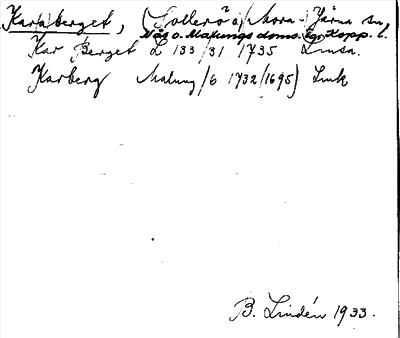 Kar(a)berget, (Sollerö o. Mora - Järna sn,
Nås o. Malungs doms. sgr Kopp. l.
Kar Berget L 133/31 1735 Lmsa.
Karberg Malung/6 1732/1695) Lmk
B. Lindén 1933.